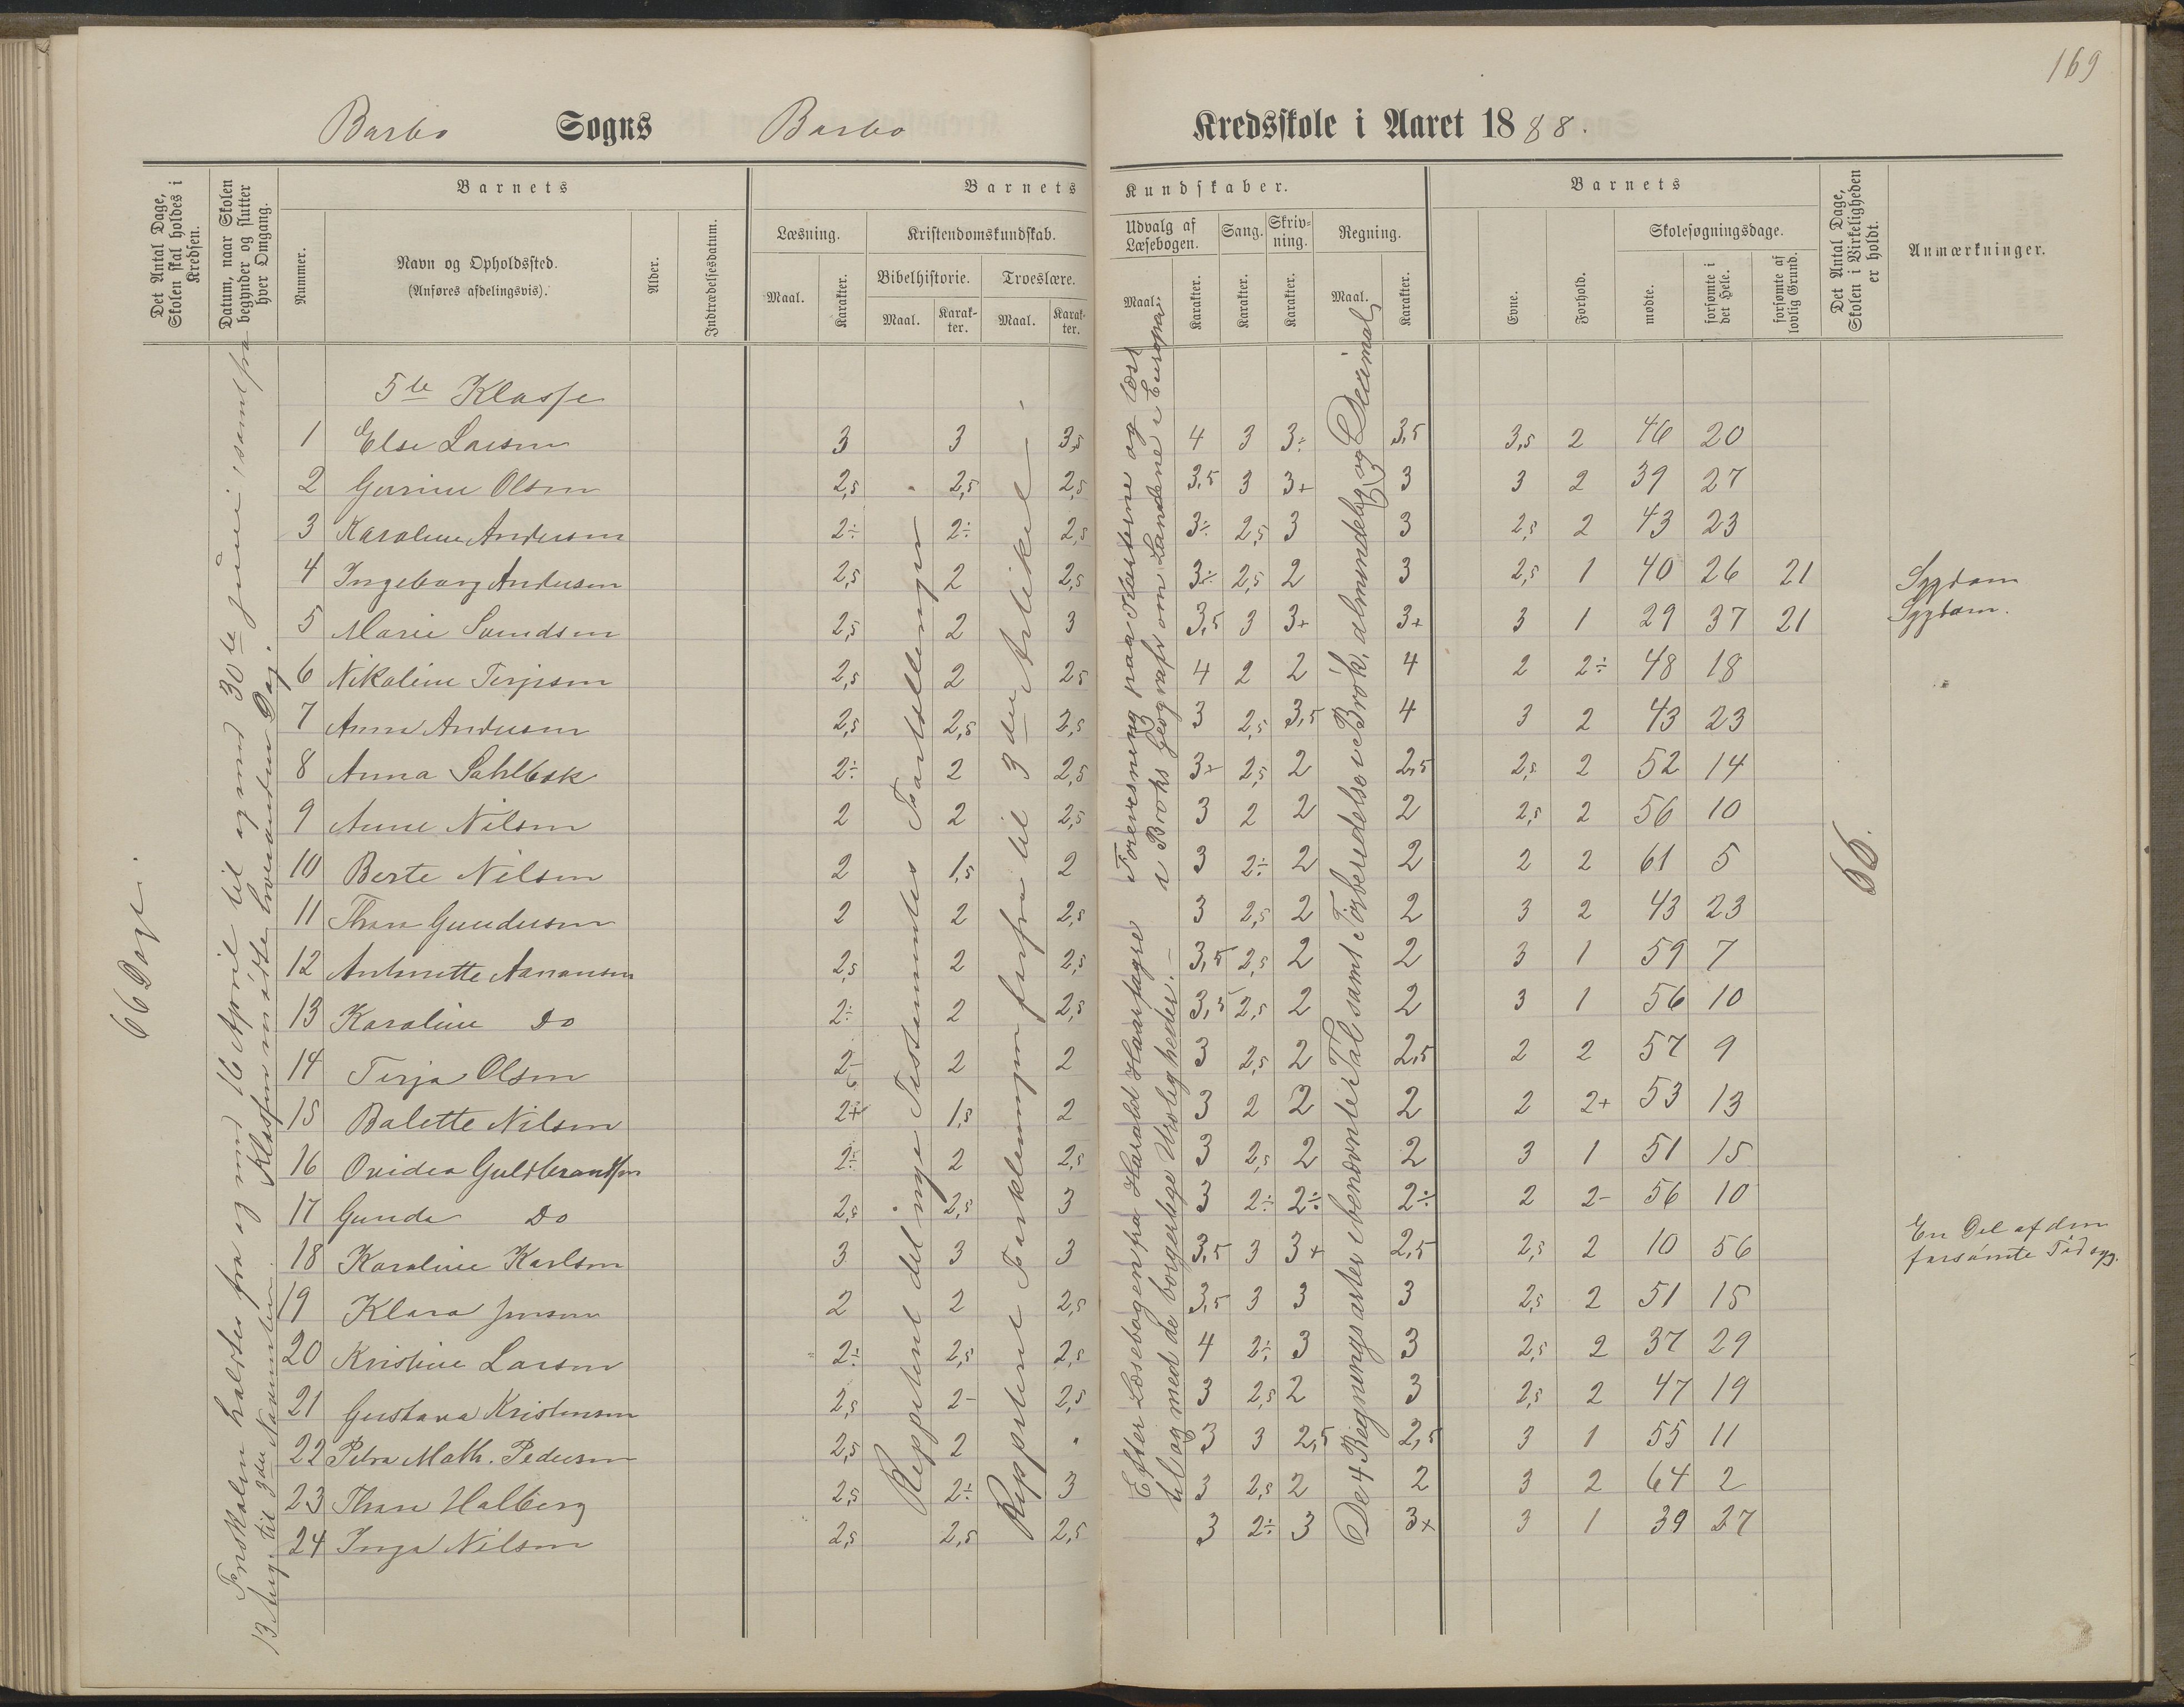 169
Barbo Sogns Barbo Kredsskole i Aaret 1888.
Det Antal Dage, Skolen skal holdes i Kredsen.
Datum, naar Skolen begynder og slutter hver Omgang.
Barnets
Nummer.
Navn og Opholdssted.
(Anføres afdelingsvis).
Alder.
Indtrædelsesdatum.
Barnets Kundskaber.
Læsning.
Maal.
Karakter.
Kristendomskundskab.
Bibelhistorie.
Maal.
Karakter.
Troeslære.
Maal.
Karakter.
Udvalg af Læsebogen.
Maal.
Karakter.
Sang.
Karakter.
Skrivning.
Karakter.
Regning.
Maal.
Karakter.
Barnets
Evne.
Forhold.
Skolesøgningsdage.
mødte.
forsømte i det Hele.
forsømte af lovlig Grund.
Det Antal Dage, Skolen i Virkeligheden er holdt.
Anmærkninger.
66 Dage.
Forskolen holdtes fra og med 16 April til og med 30te Juni, samt fra
13 Aug. til Klassen mødte hveranden Dag.
Reppetent det nye Testamentes Fortellinger
Reppetent Forklaringen forfra til 3die Artikel
Efter Læsebogen fra Harald Haarfagre
til og med de borgerlige Uroligheder.
Forevisning paa Karterne og læst
i Broks Geografi om Landene i Europa.
De 4 Regningsarter i benævnte Tal samt Forberedelse i Brøk, almindelig og Decimal
66.
5te Klasse
1 Else Larsen 3 3 3,5 4 3 3÷ 3,5 3,5 2 46 20
2 Gurine Olsen 2,5 2,5 2,5 3,5 3 3+ 3 3 2 39 27
3 Karoline Andersen 2÷ 2÷ 2,5 3÷ 2,5 3 3 2,5 2 43 23
4 Ingeborg Andersen 2,5 2 2,5 3÷ 2,5 2 3 2,5 1 40 26 21 Sygdom
5 Marie Svendsen 2,5 2 3 3,5 3 3+ 3+ 3 1 29 37 21 Sygdom.
6 Nikoline Terjesen 2,5 2 2,5 4 2 2 4 2 2÷ 48 18
7 Anna Andersen 2,5 2,5 2,5 3 2,5 3,5 4 3 2 43 23
8 Anna Sahlbek 2÷ 2 2,5 3+ 2,5 2 2,5 2,5 2 52 14
9 Anne Nilsen 2 2 2,5 3 2 2 2 2,5 2 56 10
10 Berte Nilsen 2 1,5 2 3 2÷ 2 2 2 2 61 5
11 Thora Gundersen 2 2 2,5 3 2,5 2 2 3 2 43 23
12 Antonette Aanonsen 2,5 2 2,5 3,5 2,5 2 2 3 1 59 7
13 Karoline Do 2÷ 2 2,5 3,5 2,5 2 2 3 1 56 10
14 Terja Olsen 2- 2 2 3 2,5 2 2,5 2 2 57 9
15 Balette Nilsen 2+ 1,5 2 3 2 2 2 2 2+ 53 13
16 Ovidea Guldbrandsen 2÷ 2 2,5 3 2,5 2 2 3 1 51 15
17 Gunda Do 2,5 2,5 3 3 2÷ 2÷ 2÷ 2 2- 56 10
18 Karoline Karlsen 3 3 3 3,5 3 3+ 2,5 2,5 2 10 56 En Del af den forsømte Tid syg.
19 Klara Jensen 2 2 2,5 3,5 3 3 3 2,5 2 51 15
20 Kristine Larsen 2÷ 2,5 2,5 4 2÷ 3 3 2,5 2 37 29
21 Gustava Kristensen 2,5 2- 2,5 3 2,5 2 3 2,5 2 47 19
22 Petra Math. Pedersen 2,5 2 " 3 3 2,5 2,5 3 1 55 11
23 Thora Halberg 2,5 2÷ 3 3 2,5 2 2 3 2 64 2
24 Inga Nilsen 2,5 2,5 2,5 3 2÷ 3 3+ 3 1 39 27